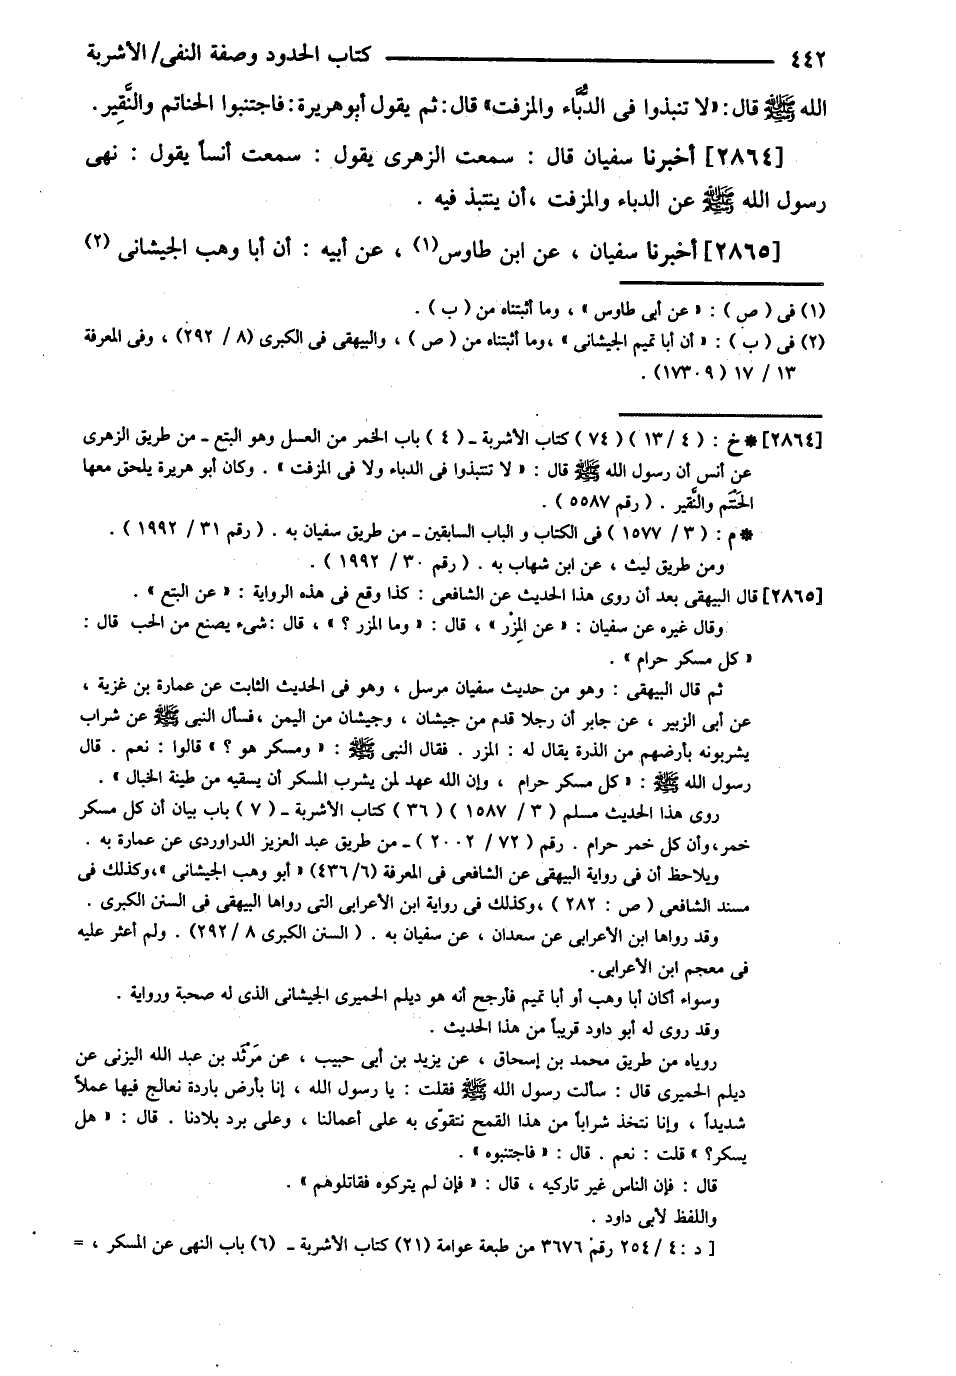 ٤٤٢ ــــــــــ كتاب الحدود وصفة النفى/ الأشربة
الله ﷺ قال: «لا تنبذوا فى الدُّبَّاء والمزفت» قال: ثم يقول أبو هريرة: فاجتنبوا الحناتم والنَّقِير.
[٢٨٦٤] أخبرنا سفيان قال : سمعت الزهرى يقول : سمعت أنساً يقول : نهى
رسول الله ﷺ عن الدباء والمزفت ،أن ينتبذ فيه .
[٢٨٦٥] أخبرنا سفيان ، عن ابن طاوس(١) ، عن أبيه : أن أبا وهب الجيشانى (٢)
(١) فى ( ص ) : « عن أبى طاوس » ، وما أثبتناه من ( ب ) .
(٢) فى ( ب ) : « أن أبا تميم الجيشانى » ،وما أثبتناه من ( ص ) ، والبيهقى فى الكبرى (٨ / ٢٩٢) ، وفى المعرفة
١٣ / ١٧ ( ١٧٣٠٩) .
[٢٨٦٤] * خ : ( ٤ / ١٣ ) ( ٧٤ ) كتاب الأشربة ـ ( ٤ ) باب الخمر من العسل وهو البتع ـ من طريق الزهرى
عن أنس أن رسول الله ﷺ قال : « لا تنتبذوا فى الدباء ولا فى المزفت » . وكان أبو هريرة يلحق معها
الحَنْتَم والنَّقير . ( رقم ٥٥٨٧ ) .
* م : ( ٣ / ١٥٧٧ ) فى الكتاب و الباب السابقين ـ من طريق سفيان به . ( رقم ٣١ / ١٩٩٢ ) .
ومن طريق ليث ، عن ابن شهاب به . ( رقم ٣٠ / ١٩٩٢ ) .
[٢٨٦٥] قال البيهقى بعد أن روى هذا الحديث عن الشافعى : كذا وقع فى هذه الرواية : « عن البتع » .
وقال غيره عن سفيان : « عن المِزْر » ، قال : « وما المزر ؟ » ، قال :شىء يصنع من الحب قال :
« كل مسكر حرام » .
ثم قال البيهقى : وهو من حديث سفيان مرسل ، وهو فى الحديث الثابت عن عمارة بن غزية ،
عن أبى الزبير ، عن جابر أن رجلا قدم من جيشان ، وجيشان من اليمن ،فسأل النبى ﷺ عن شراب
يشربونه بأرضهم من الذرة يقال له : المزر . فقال النبى ﷺ : « ومسكر هو ؟ » قالوا : نعم . قال
رسول الله ﷺ : « كل مسكر حرام ، وإن الله عهد لمن يشرب المسكر أن يسقيه من طينة الخبال » .
روى هذا الحديث مسلم ( ٣ / ١٥٨٧ ) ( ٣٦ ) كتاب الأشربة ـ ( ٧ ) باب بيان أن كل مسكر
خمر،وأن كل خمر حرام . رقم ( ٧٢ / ٢٠٠٢ ) ـ من طريق عبد العزيز الدراوردى عن عمارة به .
ويلاحظ أن فى رواية البيهقى عن الشافعى فى المعرفة (٦/ ٤٣٦) « أبو وهب الجيشانى »،وكذلك فى
مسند الشافعى ( ص : ٢٨٢ ) ،وكذلك فى رواية ابن الأعرابى التى رواها البيهقى فى السنن الكبرى .
وقد رواها ابن الأعرابى عن سعدان ، عن سفيان به . ( السنن الكبرى ٨ / ٢٩٢) . ولم أعثر عليه
فى معجم ابن الأعرابى.
وسواء أكان أبا وهب أو أبا تميم فأرجح أنه هو ديلم الحميرى الجيشانى الذى له صحبة ورواية .
وقد روى له أبو داود قريباً من هذا الحديث .
رواه من طريق محمد بن إسحاق ، عن يزيد بن أبى حبيب ، عن مَرْثَد بن عبد الله اليزنى عن
ديلم الحميرى قال : سألت رسول الله ﷺ فقلت : يا رسول الله ، إنا بأرض باردة نعالج فيها عملاً
شديداً ، وإنا نتخذ شراباً من هذا القمح نتقوّى به على أعمالنا ، وعلى برد بلادنا . قال : « هل
يسكر؟ » قلت : نعم . قال : « فاجتنبوه » .
قال : فإن الناس غير تاركيه ، قال : « فإن لم يتركوه فقاتلوهم » .
واللفظ لأبى داود .
[ د : ٤ / ٢٥٤ رقم ٣٦٧٦ من طبعة عوامة (٢١) كتاب الأشربة ـ (٦) باب النهى عن المسكر ، =